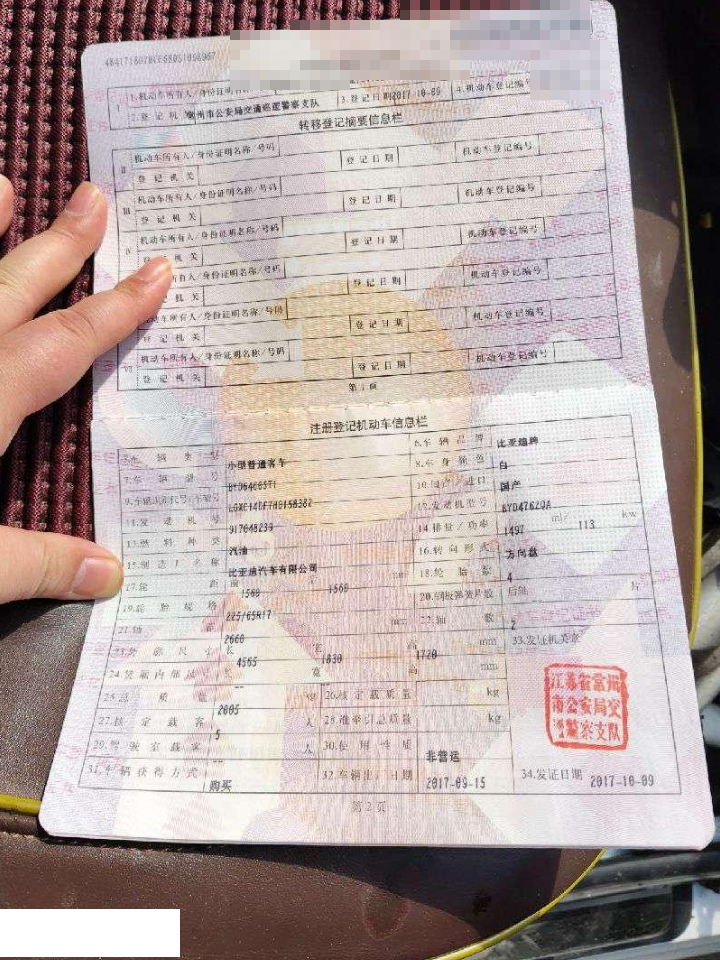 1.机动车所有人/身份证明名称/号码
2.登记机关 常州市公安局交通巡逻警察支队 3.登记日期 2017-10-09 4.机动车登记编号
转移登记摘要信息栏
II 机动车所有人/身份证明名称/号码
登记机关 登记日期 机动车登记编号
III 机动车所有人/身份证明名称/号码
登记机关 登记日期 机动车登记编号
机动车所有人/身份证明名称/号码
登记机关 登记日期 机动车登记编号
所有人/身份证明名称/号码
机关 登记日期 机动车登记编号
动车所有人/身份证明名称/号码
登记机关 登记日期 机动车登记编号
机动车所有人/身份证明名称/号码
登记机关 登记日期 机动车登记编号
第1页
注册登记机动车信息栏
5.车辆类型 小型普通客车 6.车辆品牌 比亚迪牌
7.车辆型号 8.车身颜色 白
9.车辆识别代号/车架号 10.国产/进口 国产
11.发动机号 917048239 12.发动机型号 BYD476ZQA
13.燃料种类 汽油 14.排量/功率 1497 ml/ 113 kw
15.制造厂名称 比亚迪汽车有限公司 16.转向形式 方向盘
17.轮距 前 1560 1560 18.轮胎数 4
19.轮胎规格 225/65R17 20.钢板弹簧片数 后轴 片
21.轴距 2660 mm 22.轴数 2
23.外廓尺寸 长 4565 宽 1830 高 1720 mm 33.发证机关章
24.货厢内部尺寸 长 -- 宽 高 mm
25.总质量 2005 26.核定载质量 -- kg
27.核定载客 5 人 28.准牵引总质量 -- kg
29.驾驶室载客 -- 人 30.使用性质 非营运
31.车辆获得方式 购买 32.车辆出厂日期 2017-09-15 34.发证日期 2017-10-09
江苏省常州
市公安局交
警察支队
第2页